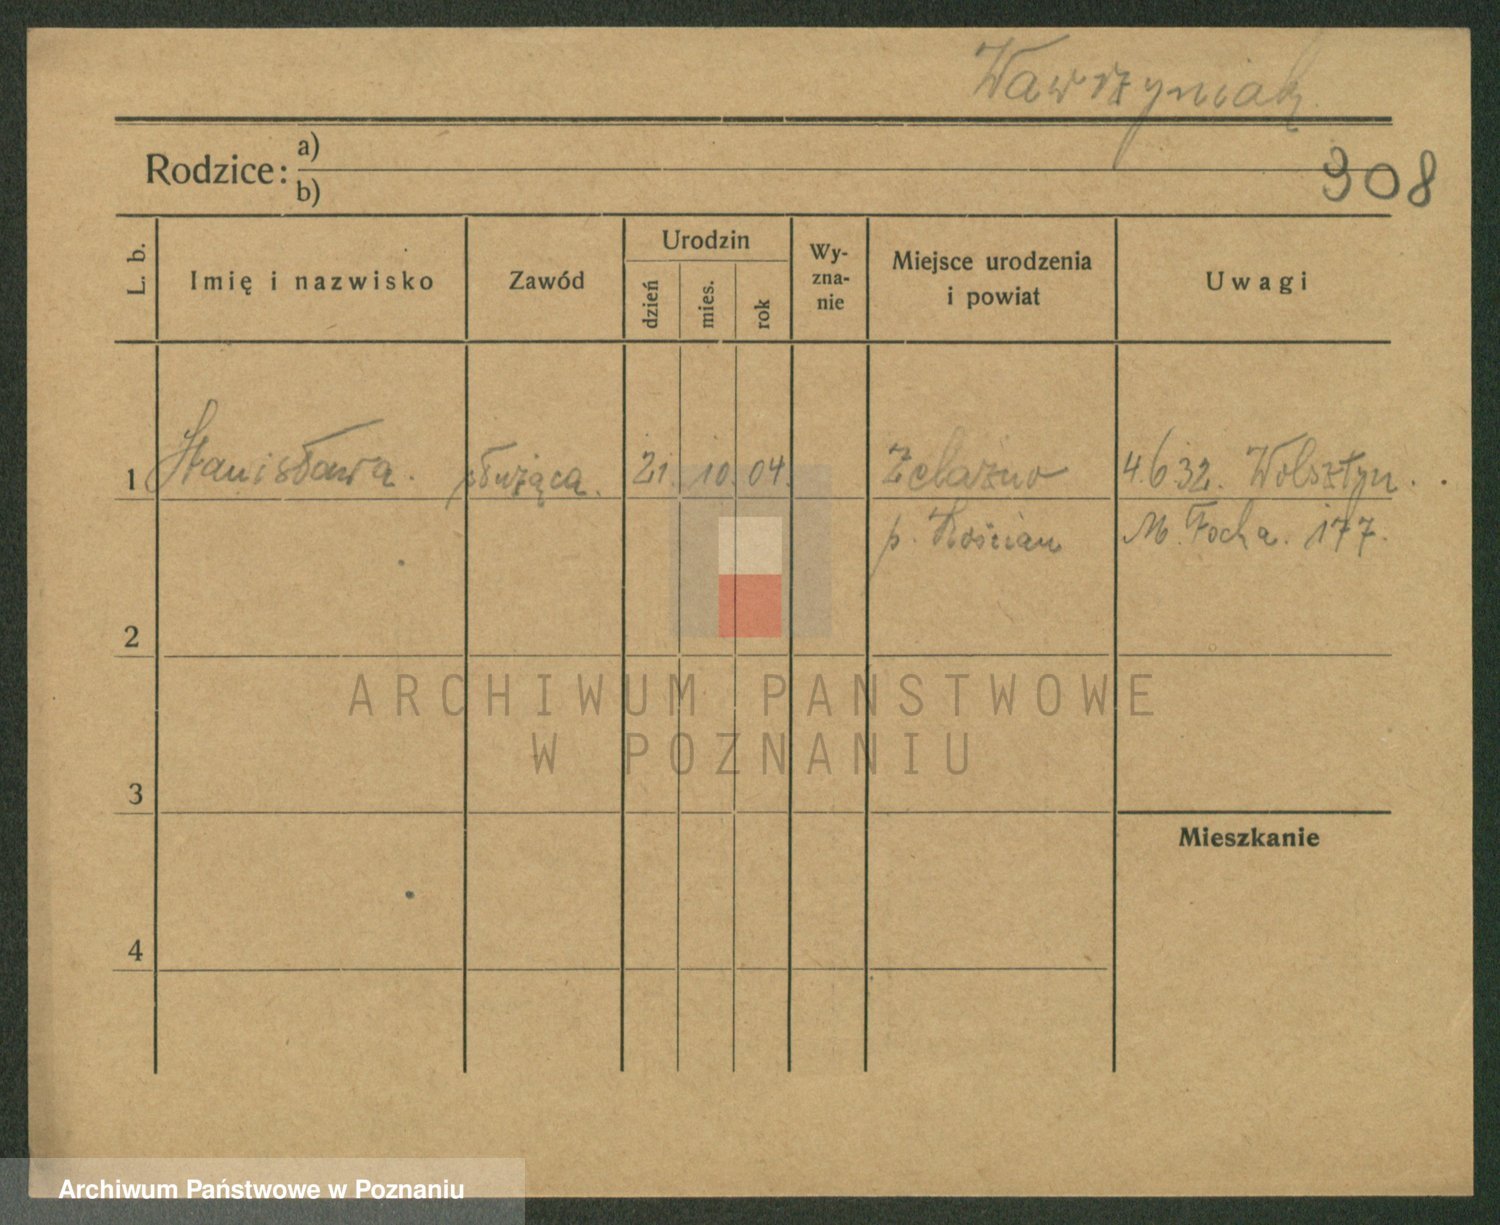 Wawrzyniak
Rodzice: a)
b)
308
L. b.
Imię i nazwisko
Zawód
Urodzin
dzień
mies.
rok
Wy-
zna-
nie
Miejsce urodzenia
i powiat
Uwagi
1 Stanisława. służąca. 21. 10. 04. Żelazno 4.6.32. Wolsztyn.
p. Kościan M. Focha. 177.
2
ARCHIWUM PAŃSTWOWE
W POZNANIU
3
Mieszkanie
4
Archiwum Państwowe w Poznaniu